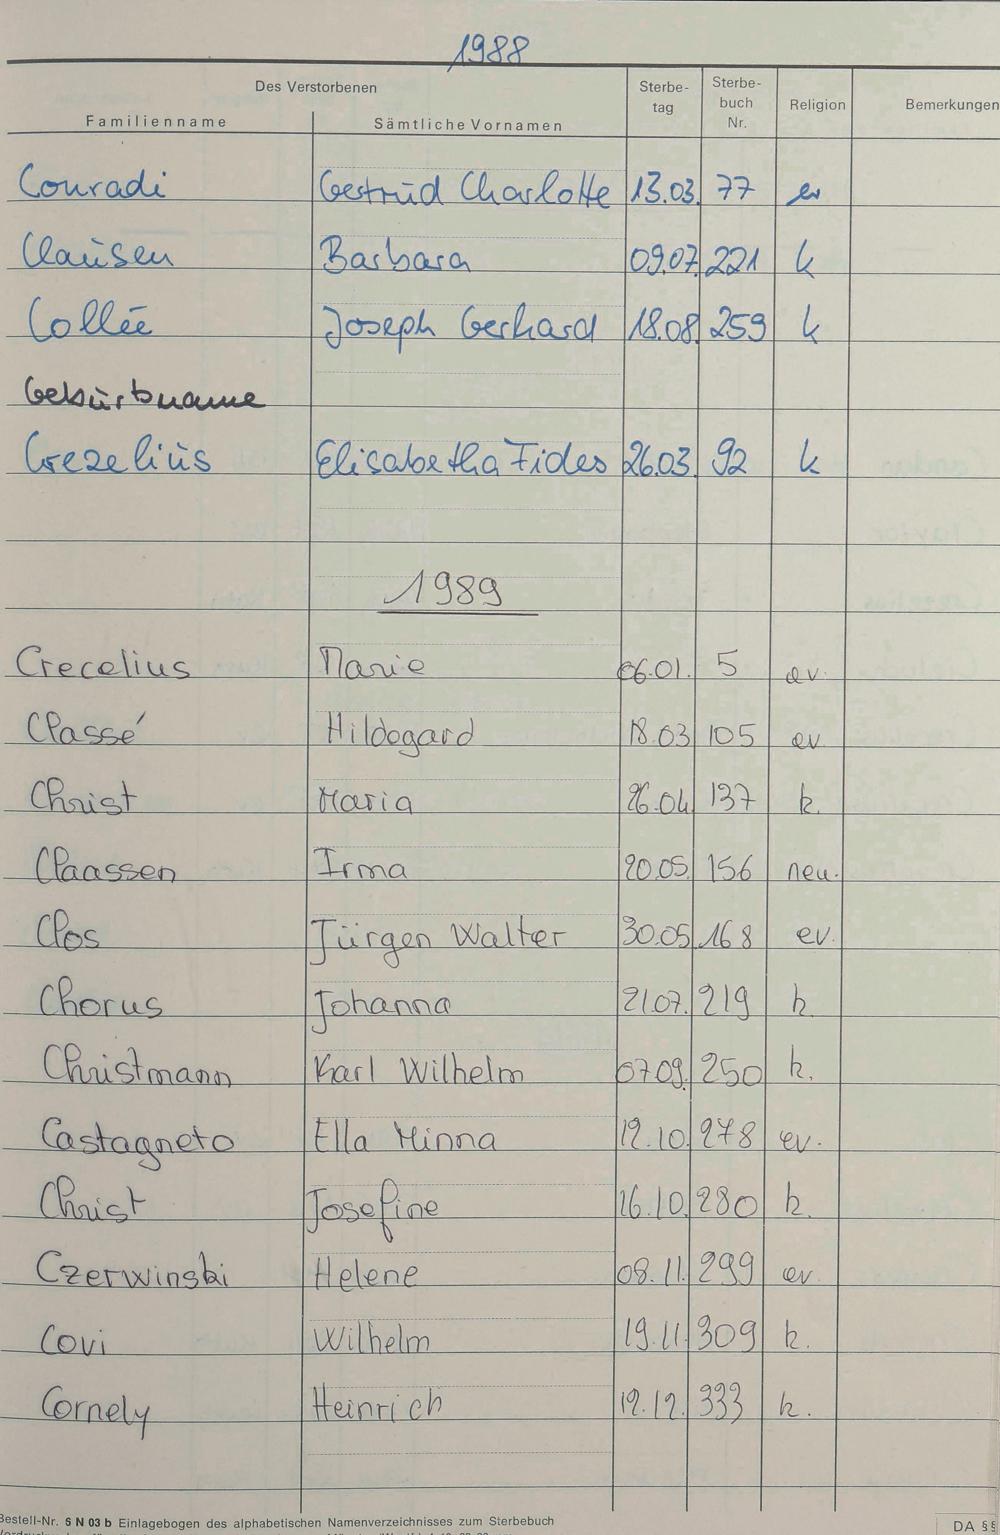 1988
Des Verstorbenen
Familienname Sämtliche Vornamen Sterbe-tag Sterbe-buch Nr. Religion Bemerkungen
Conradi Gertrud Charlotte 13.03. 77 ev
Clausen Barbara 09.07. 221 k
Collée Joseph Gerhard 18.08. 259 k
Geburtsname
Crezelius Elisabetha Fides 26.03. 92 k
1989
Crecelius Marie 06.01. 5 ev.
Classé Hildegard 18.03 105 ev
Christ Maria 26.04 137 k.
Claassen Irma 20.05. 156 neu.
Clos Jürgen Walter 30.05 168 ev.
Chorus Johanna 21.07. 219 k.
Christmann Karl Wilhelm 07.09. 250 k.
Castagneto Ella Minna 12.10. 278 ev.
Christ Josefine 16.10. 280 k.
Czerwinski Helene 08.11. 299 ev
Covi Wilhelm 19.11. 309 k.
Cornely Heinrich 12.12. 333 k.
Bestell-Nr. S N 03 b Einlagebogen des alphabetischen Namenverzeichnisses zum Sterbebuch
DA §§